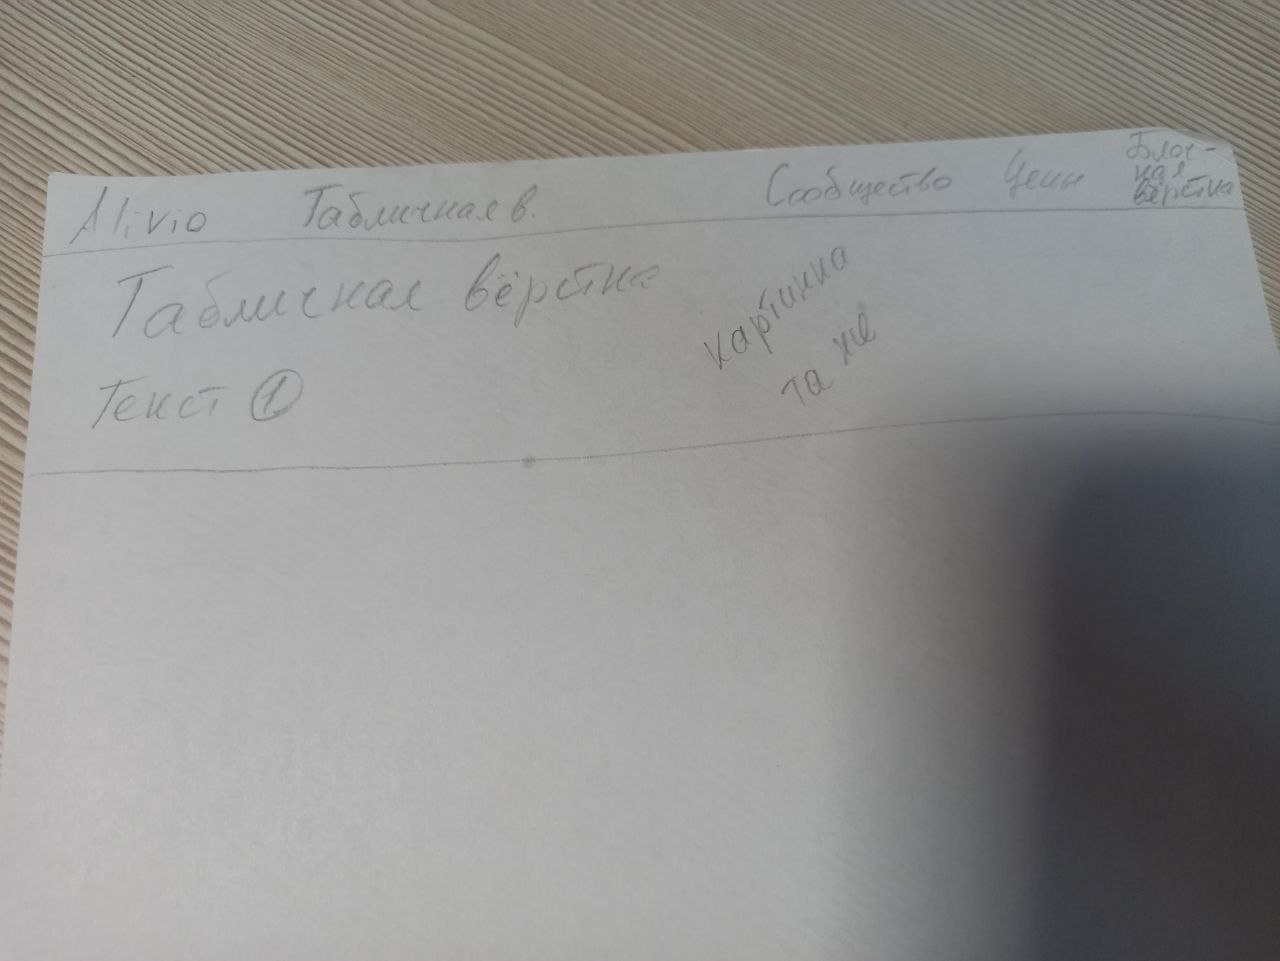 Alivio Табличная в. Сообщество Цены Блоч-
ная
вёрстка
Табличная вёрстка
картинка
та же
Текст 1